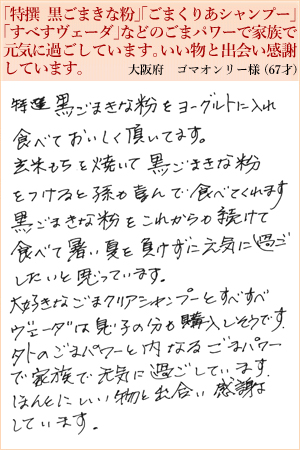 「特撰 黒ごまきな粉」「ごまくりあシャンプー」
「すべすヴェーダ」などのごまパワーで家族で
元気に過ごしています。いい物と出会い感謝
しています。　大阪府　ゴマオンリー様（67才）
特選 黒ごまきな粉をヨーグルトに入れ
食べておいしく頂いてます。
玄米もちを焼いて黒ごまきな粉
をつけると孫も喜んで食べてくれます
黒ごまきな粉をこれからも続けて
食べて暑い夏を負けずに元気に過ご
したいと思っています。
大好きなごまクリアシャンプーとすべすべ
ヴェーダは息子の分も購入しそうです。
外のごまパワーと内なるごまパワー
で家族で元気に過ごしています。
ほんとにいい物と出合い感謝
しています。